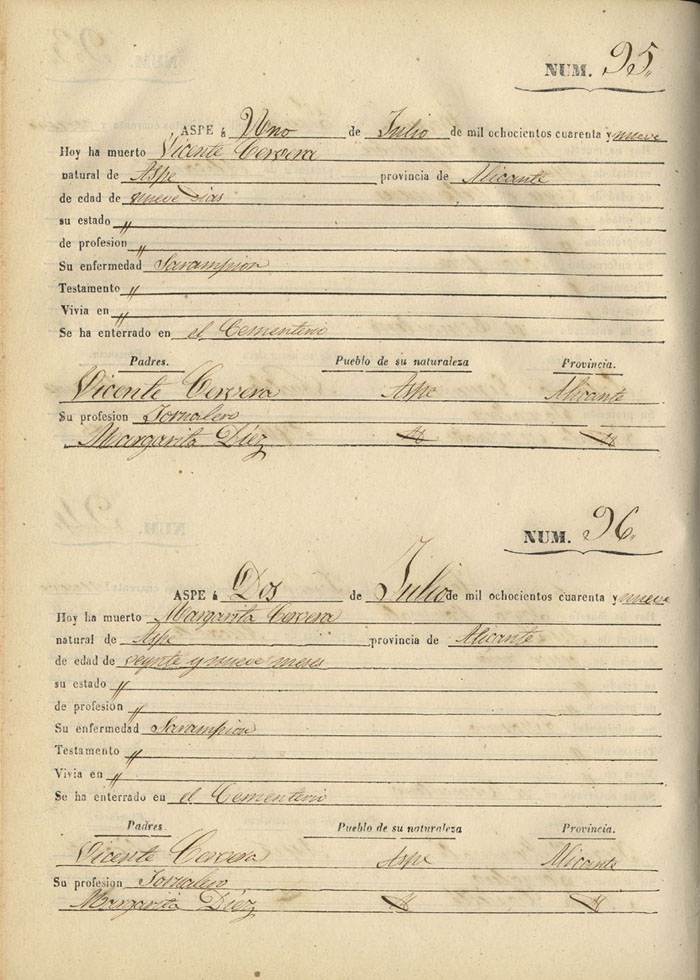 NUM. 95.
ASPE á Uno de Julio de mil ochocientos cuarenta y nueve
Hoy ha muerto Vicente Cervera
natural de Aspe provincia de Alicante
de edad de nueve dias
su estado "
de profesion "
Su enfermedad Sarampion
Testamento "
Vivia en "
Se ha enterrado en el Cementerio
Padres. Pueblo de su naturaleza Provincia.
Vicente Cervera Aspe Alicante
Su profesion Jornalero
Margarita Díez
NUM. 96.
ASPE á Dos de Julio de mil ochocientos cuarenta y nueve
Hoy ha muerto Margarita Cervera
natural de Aspe provincia de Alicante
de edad de veynte y nueve meses
su estado "
de profesion "
Su enfermedad Sarampion
Testamento "
Vivia en "
Se ha enterrado en el Cementerio
Padres. Pueblo de su naturaleza Provincia.
Vicente Cervera Aspe Alicante
Su profesion Jornalero
Margarita Díez